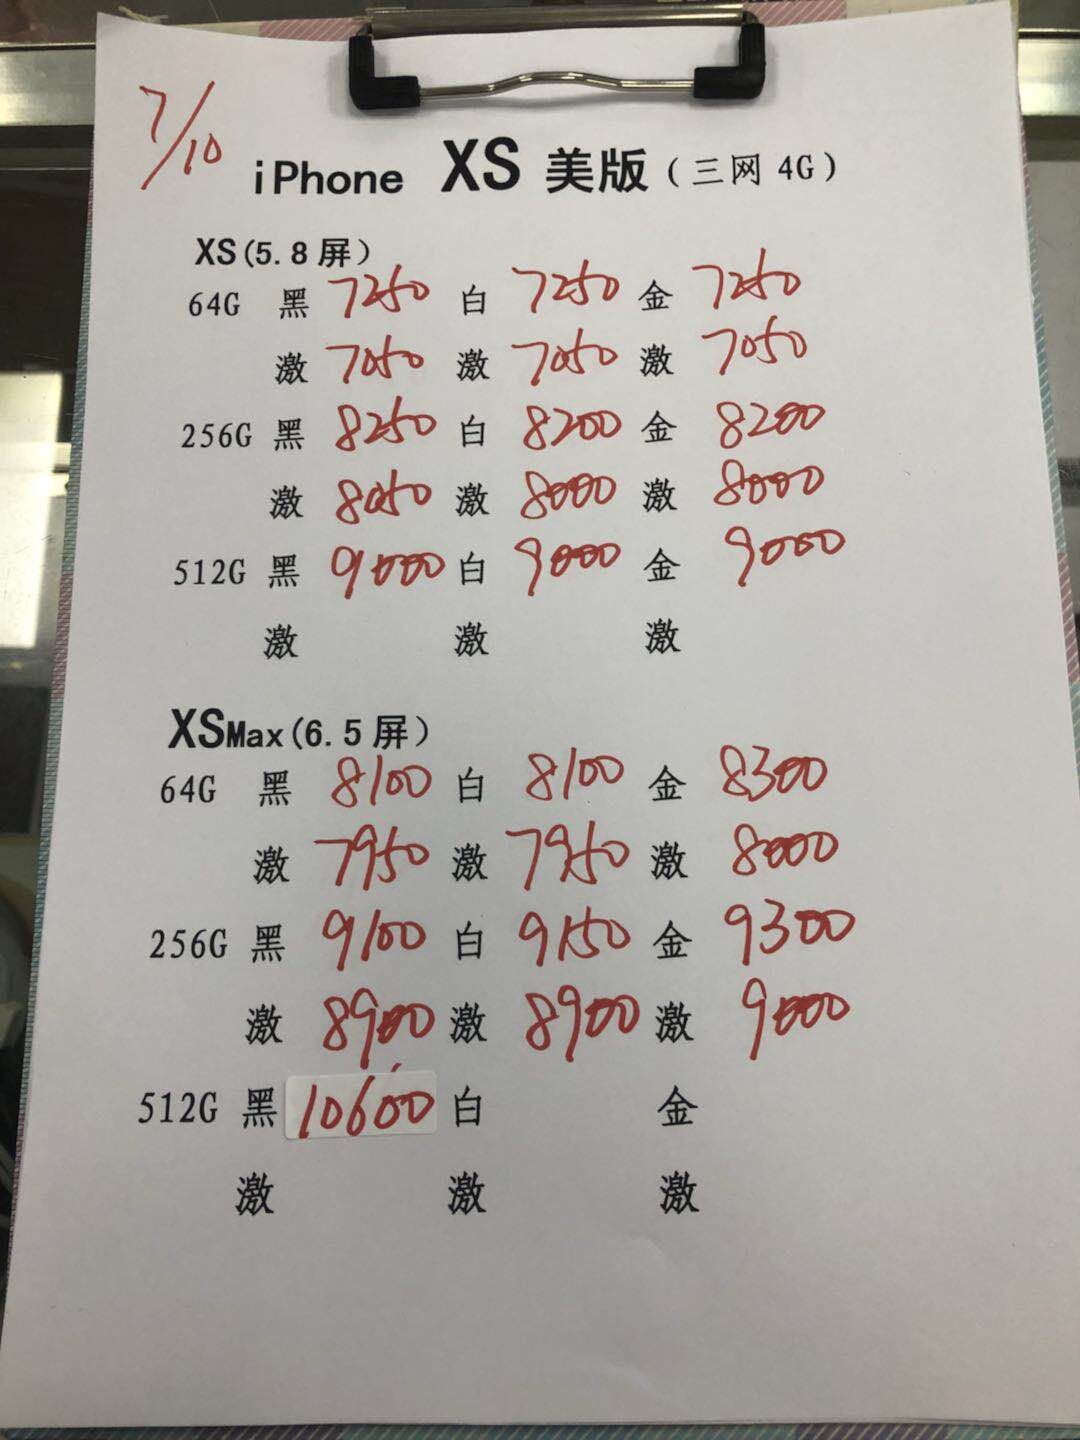 7/10
iPhone XS 美版（三网 4G）
XS(5.8 屏）
64G 黑 7250 白 7250 金 7250
激 7050 激 7050 激 7050
256G 黑 8250 白 8200 金 8200
激 8050 激 8000 激 8000
512G 黑 9000 白 9000 金 9000
激 激 激
XSMax(6.5 屏）
64G 黑 8100 白 8100 金 8300
激 7950 激 7950 激 8000
256G 黑 9100 白 9150 金 9300
激 8900 激 8900 激 9000
512G 黑 10600 白 金
激 激 激